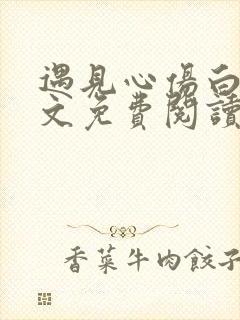 遇見心傷白
文免費閱讀
香菜牛肉餃子